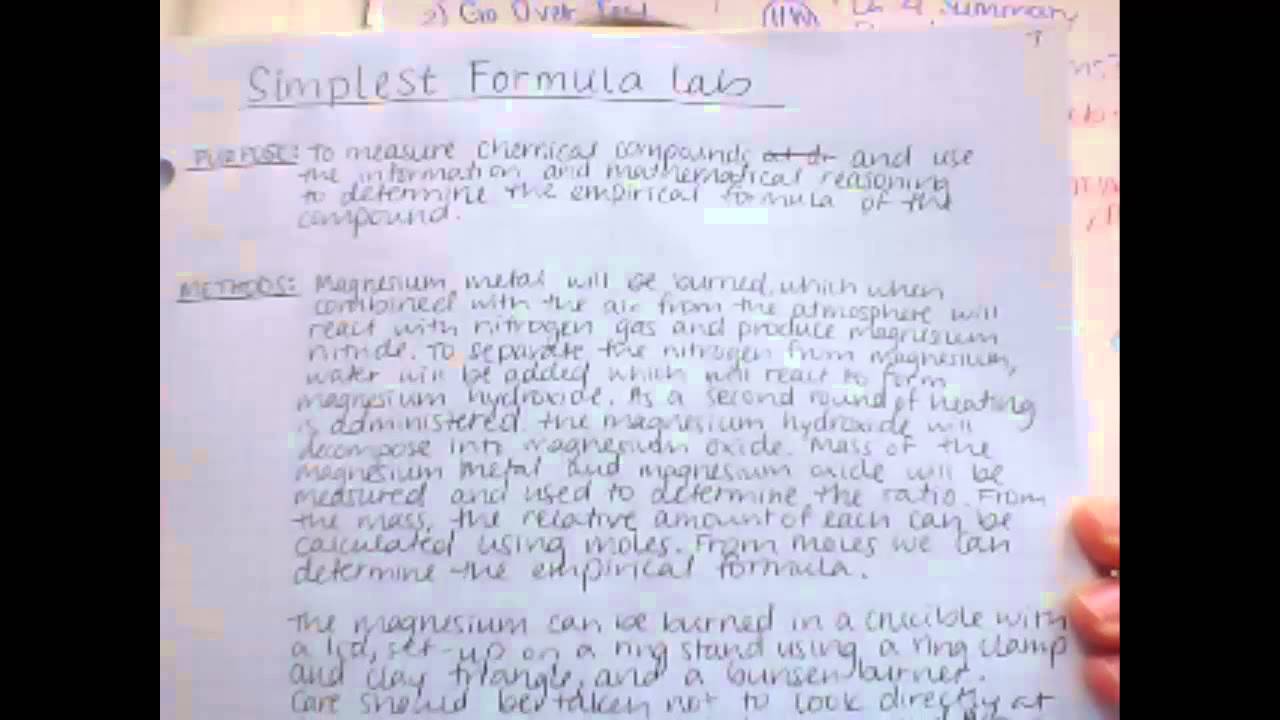 2) Go Over Test
HW
Ch 4 Summary
Simplest Formula Lab
PURPOSE: To measure chemical compounds and use
the information and mathematical reasoning
to determine the empirical formula of the
compound.
METHODS: Magnesium metal will be burned, which when
combined with the air from the atmosphere will
react with nitrogen gas and produce magnesium
nitride. To separate the nitrogen from magnesium,
water will be added which will react to form
magnesium hydroxide. As a second round of heating
is administered the magnesium hydroxide will
decompose into magnesium oxide. Mass of the
magnesium metal and magnesium oxide will be
measured and used to determine the ratio. From
the mass, the relative amount of each can be
calculated using moles. From moles we can
determine the empirical formula.
The magnesium can be burned in a crucible with
a lid, set-up on a ring stand using a ring clamp
and clay triangle, and a bunsen burner.
Care should be taken not to look directly at